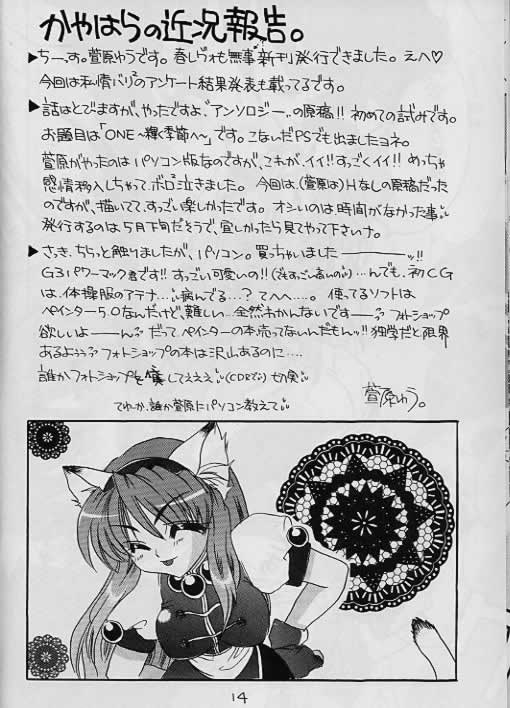 かやはらの近況報告。
▶ちーっす。萱原ゆうです。春しらぉも無事新刊発行できました。えへ♡
今回は私情バリ2のアンケート結果発表も載ってるです。
▶話はとびますが、やったですよ、"アンソロジー"の原稿!! 初めての試みです。
お題目は「ONE～輝く季節へ～」です。こないだPSでも出ましたヨネ。
萱原がやったのはパソコン版なのですが、これがイイ!!すっごくイイ!! めっちゃ
感情移入しちゃってボロ泣きました。今回は、(萱原は)Hなしの原稿だった
のですが、描いてて、すっごい楽しかったです。オシいのは時間がなかった事。
発行するのは5月下旬だそうで、宜しかったら見てやって下さいナ。
▶さっき、ちらっと触りましたが、パソコン。買っちゃいましたーーーッ!!
G3パワーマック君です!!すっごい可愛いの!!(でもすっごい高いの)…んでも、初CG
は、体操服のアテナ…病んでる…?てへへ…。使ってるソフトは
ペインター5.0なんだけど、難しい…全然わかんないですーーっ フォトショップ
欲しいよーーーん だって、ペインターの本、売ってないんだもんッ!!独学だと限界
あるようぅっ フォトショップの本は沢山あるのに…。
誰かフォトショップをしてえええ(CDRで)切実
てゆーか、誰か萱原にパソコン教えて
萱原ゆう。
14